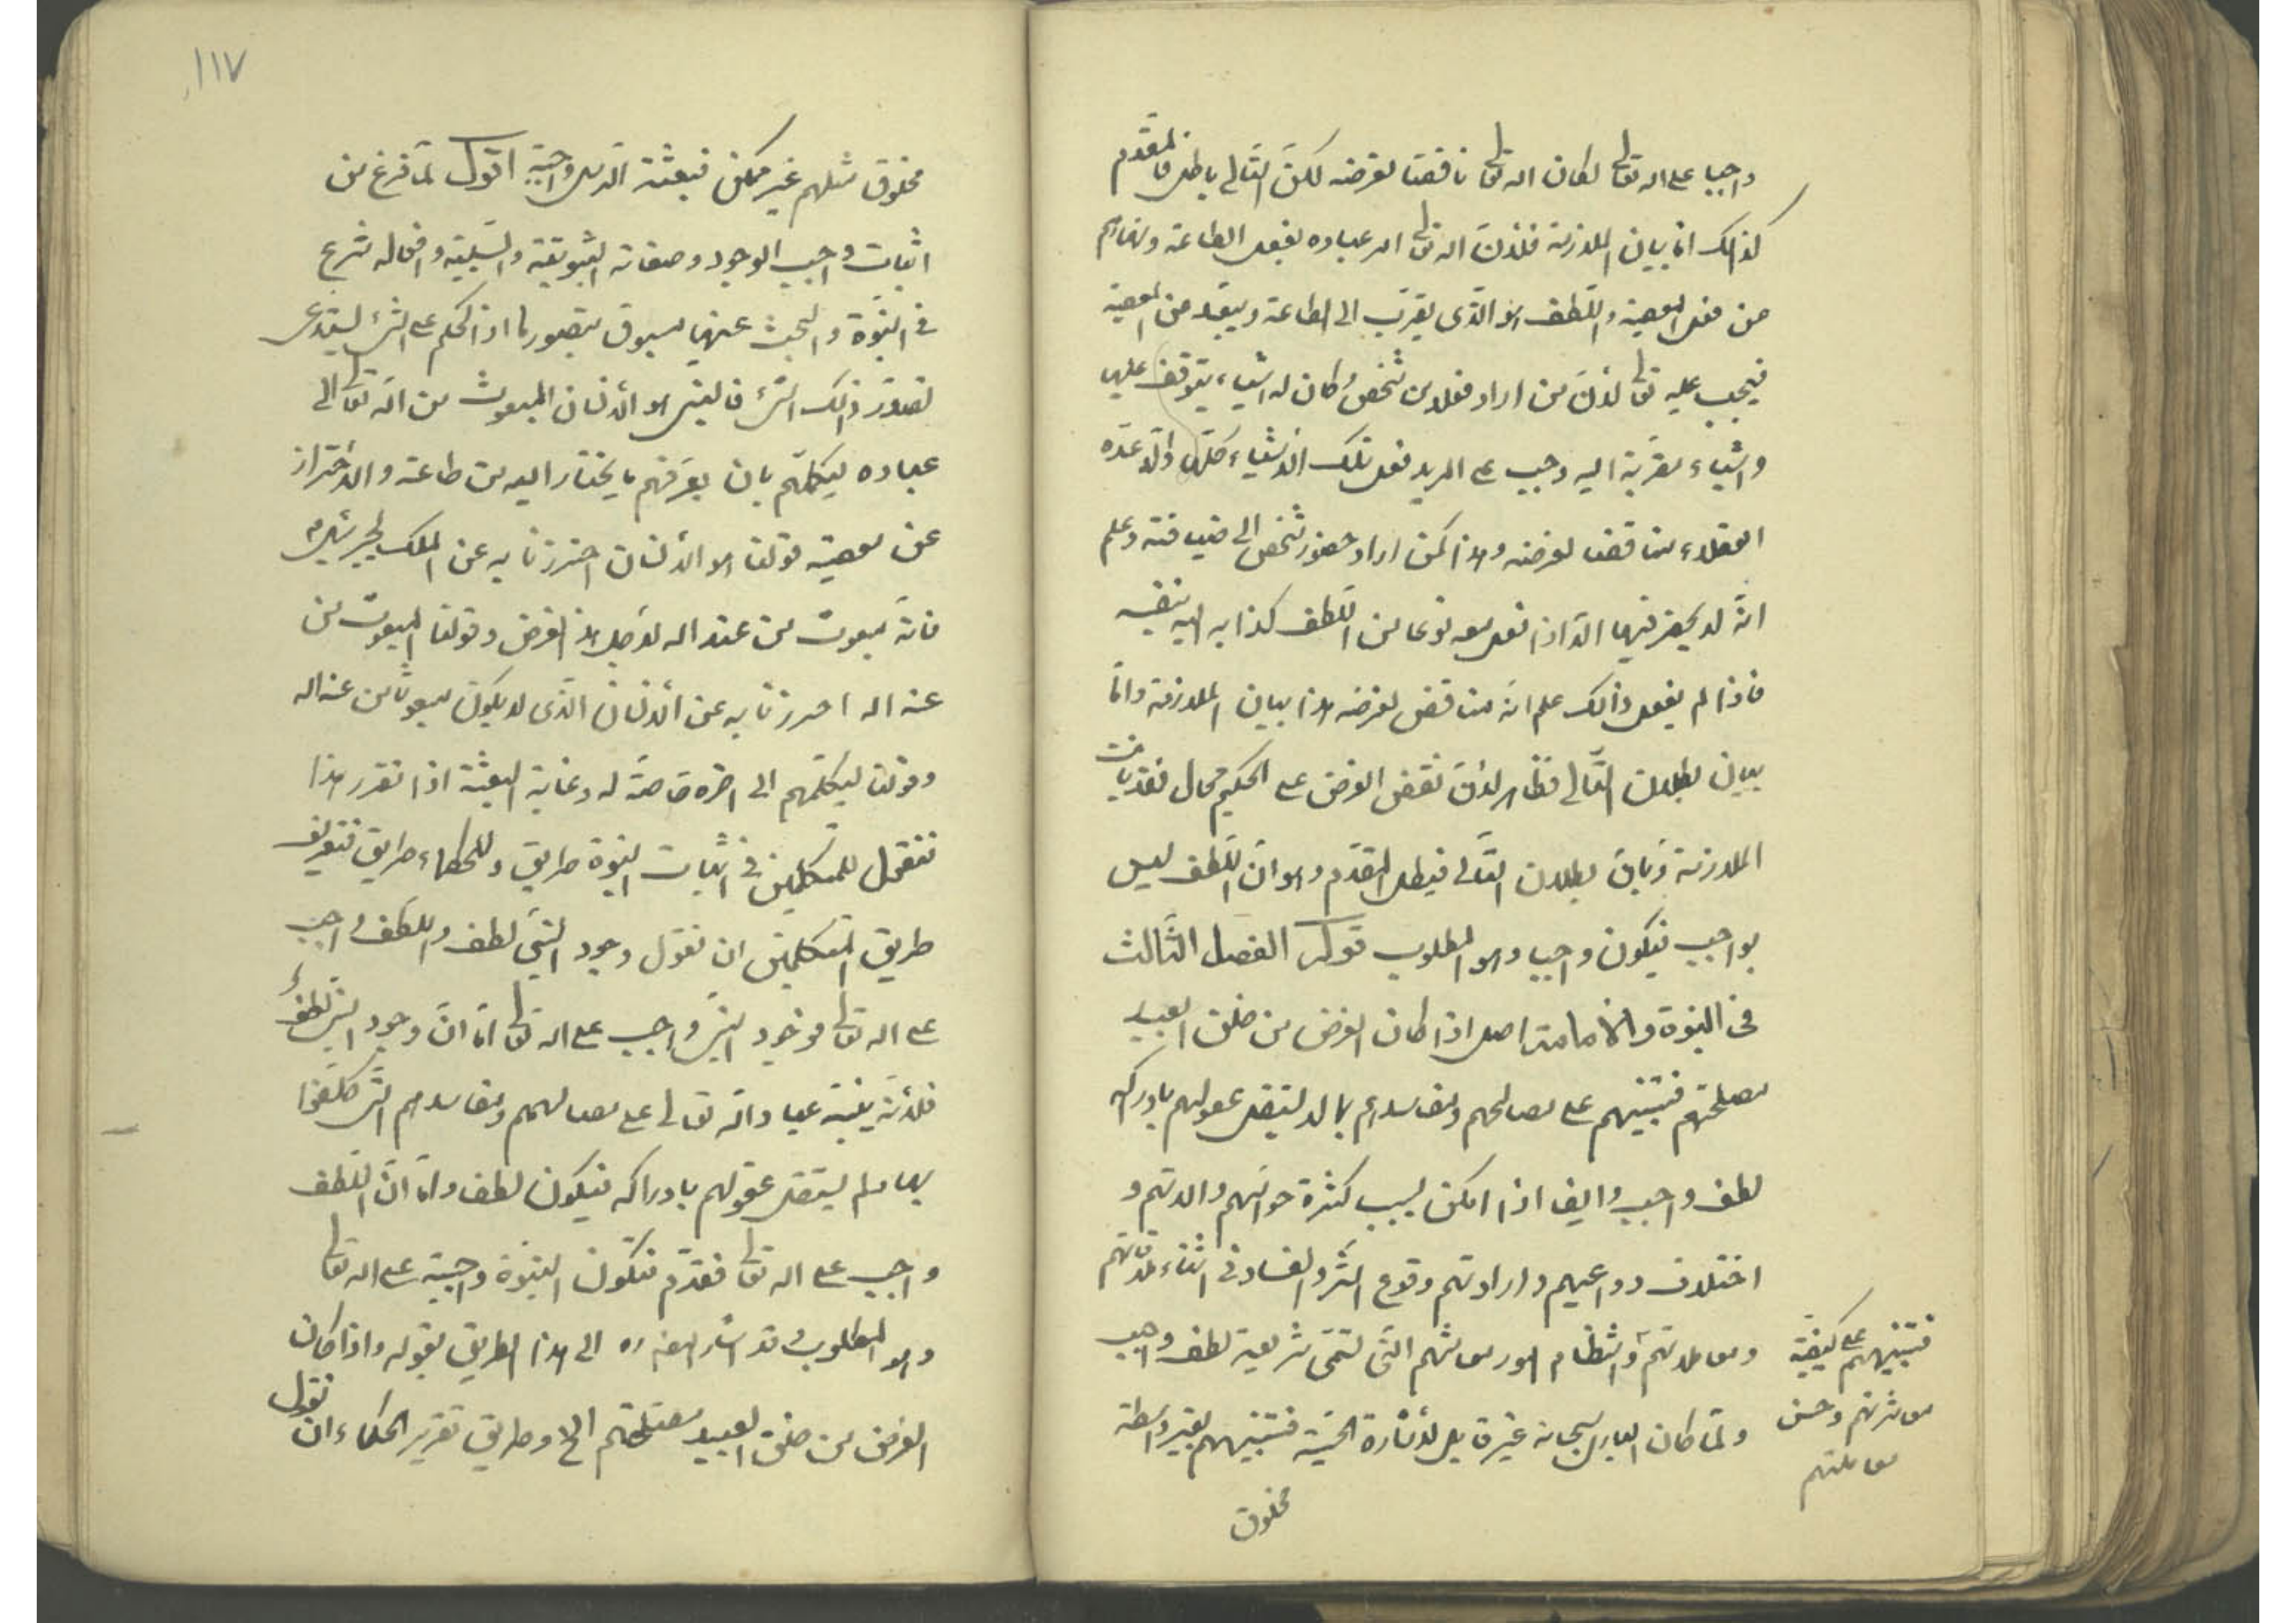 واجبا على الله تعالى لكان الله تعالى ناقضا لغرضه لكن التالي باطل فالمقدم
كذلك اما بيان الملازمة فلأن الله تعالى امر عباده بفعل الطاعة ونهاهم
من فعل المعصية واللطف هو الذى يقرب الى الطاعة ويبعد من المعصية
فيجب عليه تعالى لأن من اراد فعلا من شخص وكان له اشياء يتوقف عليها
واشياء مقربة اليه وجب على المريد فعل تلك الأشياء كلها والا عده
العقلاء مناقضا لغرضه وهذا كمن اراد حضور شخص الى ضيافته وعلم
انه لا يحضر فيها الا اذا فعل معه نوعا من اللطف كذا به اليه بنفسه
فاذا لم يفعل ذلك علم انه مناقض لغرضه هذا بيان الملازمة واما
بيان بطلان التالى فظاهر لأن نقض الغرض على الحكيم محال فقد بانت
الملازمة وبان بطلان التالى فبطل المقدم وهو ان اللطف ليس
بواجب فيكون واجبا وهو المطلوب قوله الفصل الثالث
فى النبوة والامامة اصل اذا كان الغرض من خلق العبيد
مصلحتهم فتنبيههم على مصالحهم ومفاسدهم بما لا يستقل عقولهم بادراكه
لطف واجب وايضا اذا امكن بسبب كثرة حواسهم والاتهم و
اختلاف دواعيهم واراداتهم وقوع الشر والفساد فى اثناء ملاقاتهم
ومعاملاتهم وانتظام امور معاشهم التى تسمى شريعة لطف واجب
ولما كان البارى سبحانه غير قابل للأشارة الحسية فتنبيههم بغير واسطة
فتنبيههم على كيفية
معاشرتهم وحسن
معاملتهم
مخلوق
١١٧
مخلوق مثلهم غير ممكن فبعثة الرسل واجبة اقول لما فرغ من
اثبات واجب الوجود وصفاته الثبوتية والسلبية وافعاله شرع
فى النبوة والبحث عنها مسبوق بتصورها اذ الحكم على الشئ يستدعى
تصور ذلك الشئ فالنبى هو الأنسان المبعوث من الله تعالى الى
عباده ليكملهم بان يعرفهم ما يحتاج اليه من طاعته والأحتراز
عن معصيته قولنا هو الأنسان احترزنا به عن الملك لجبرئيل
فانه مبعوث من عند الله لأجل هذا الغرض وقولنا المبعوث من
عند الله احترزنا به عن الأنسان الذى لا يكون مبعوثا من عند الله
وقولنا ليكملهم الى اخره خاصة له وغاية البعثة اذا تقرر هذا
فنقول للمتكلمين فى اثبات النبوة طريق وللحكماء طريق فتقرير
طريق المتكلمين ان نقول وجود النبى لطف واللطف واجب
على الله تعالى فوجود النبى واجب على الله تعالى اما ان وجود النبى لطف
فلأنه ينبه عباد الله تعالى على مصالحهم ومفاسدهم التى كلفوا
بها ما لم يستقل عقولهم بادراكه فيكون لطفا واما ان اللطف
واجب على الله تعالى فقد تقدم فتكون النبوة واجبة على الله تعالى
وهو المطلوب وقد اشار المص ره الى هذا الطريق بقوله واذا كان
الغرض من خلق العبيد مصلحتهم الخ وطريق تقرير الحكماء ان نقول